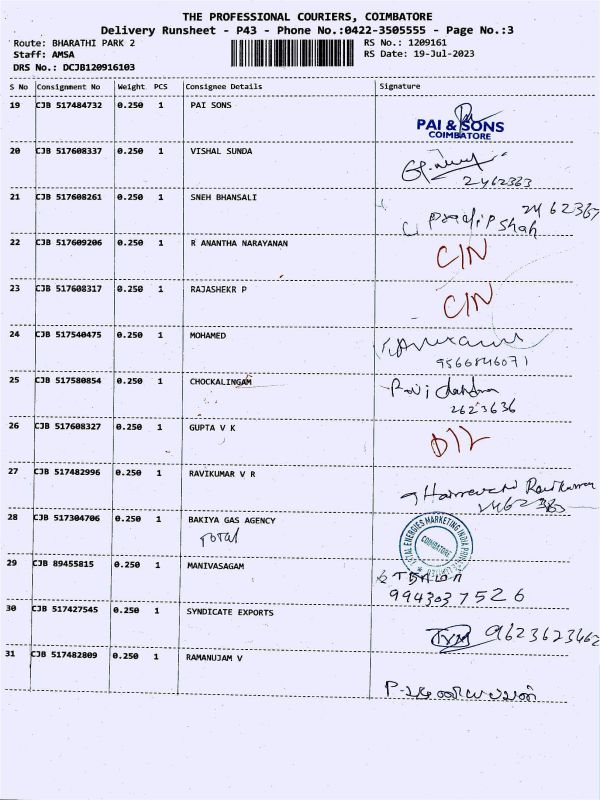 THE PROFESSIONAL COURIERS, COIMBATORE
Delivery Runsheet - P43 - Phone No.:0422-3505555 - Page No.:3
Route: BHARATHI PARK 2 RS No.: 1209161
Staff: AMSA RS Date: 19-Jul-2023
DRS No.: DCJB120916103
S No Consignment No Weight PCS Consignee Details Signature
19 CJB 517484732 0.250 1 PAI SONS
PAI & SONS
COIMBATORE
20 CJB 517608337 0.250 1 VISHAL SUNDA
2462363
21 CJB 517608261 0.250 1 SNEH BHANSALI
pradip shah
22 CJB 517609206 0.250 1 R ANANTHA NARAYANAN C/N
23 CJB 517608317 0.250 1 RAJASHEKR P C/N
24 CJB 517540475 0.250 1 MOHAMED
9566846071
25 CJB 517580854 0.250 1 CHOCKALINGAM
2623636
26 CJB 517608327 0.250 1 GUPTA V K D/L
27 CJB 517482996 0.250 1 RAVIKUMAR V R
28 CJB 517304706 0.250 1 BAKIYA GAS AGENCY
Total
COIMBATORE
29 CJB 89455815 0.250 1 MANIVASAGAM
9943037526
30 CJB 517427545 0.250 1 SYNDICATE EXPORTS
9623623462
31 CJB 517482809 0.250 1 RAMANUJAM V